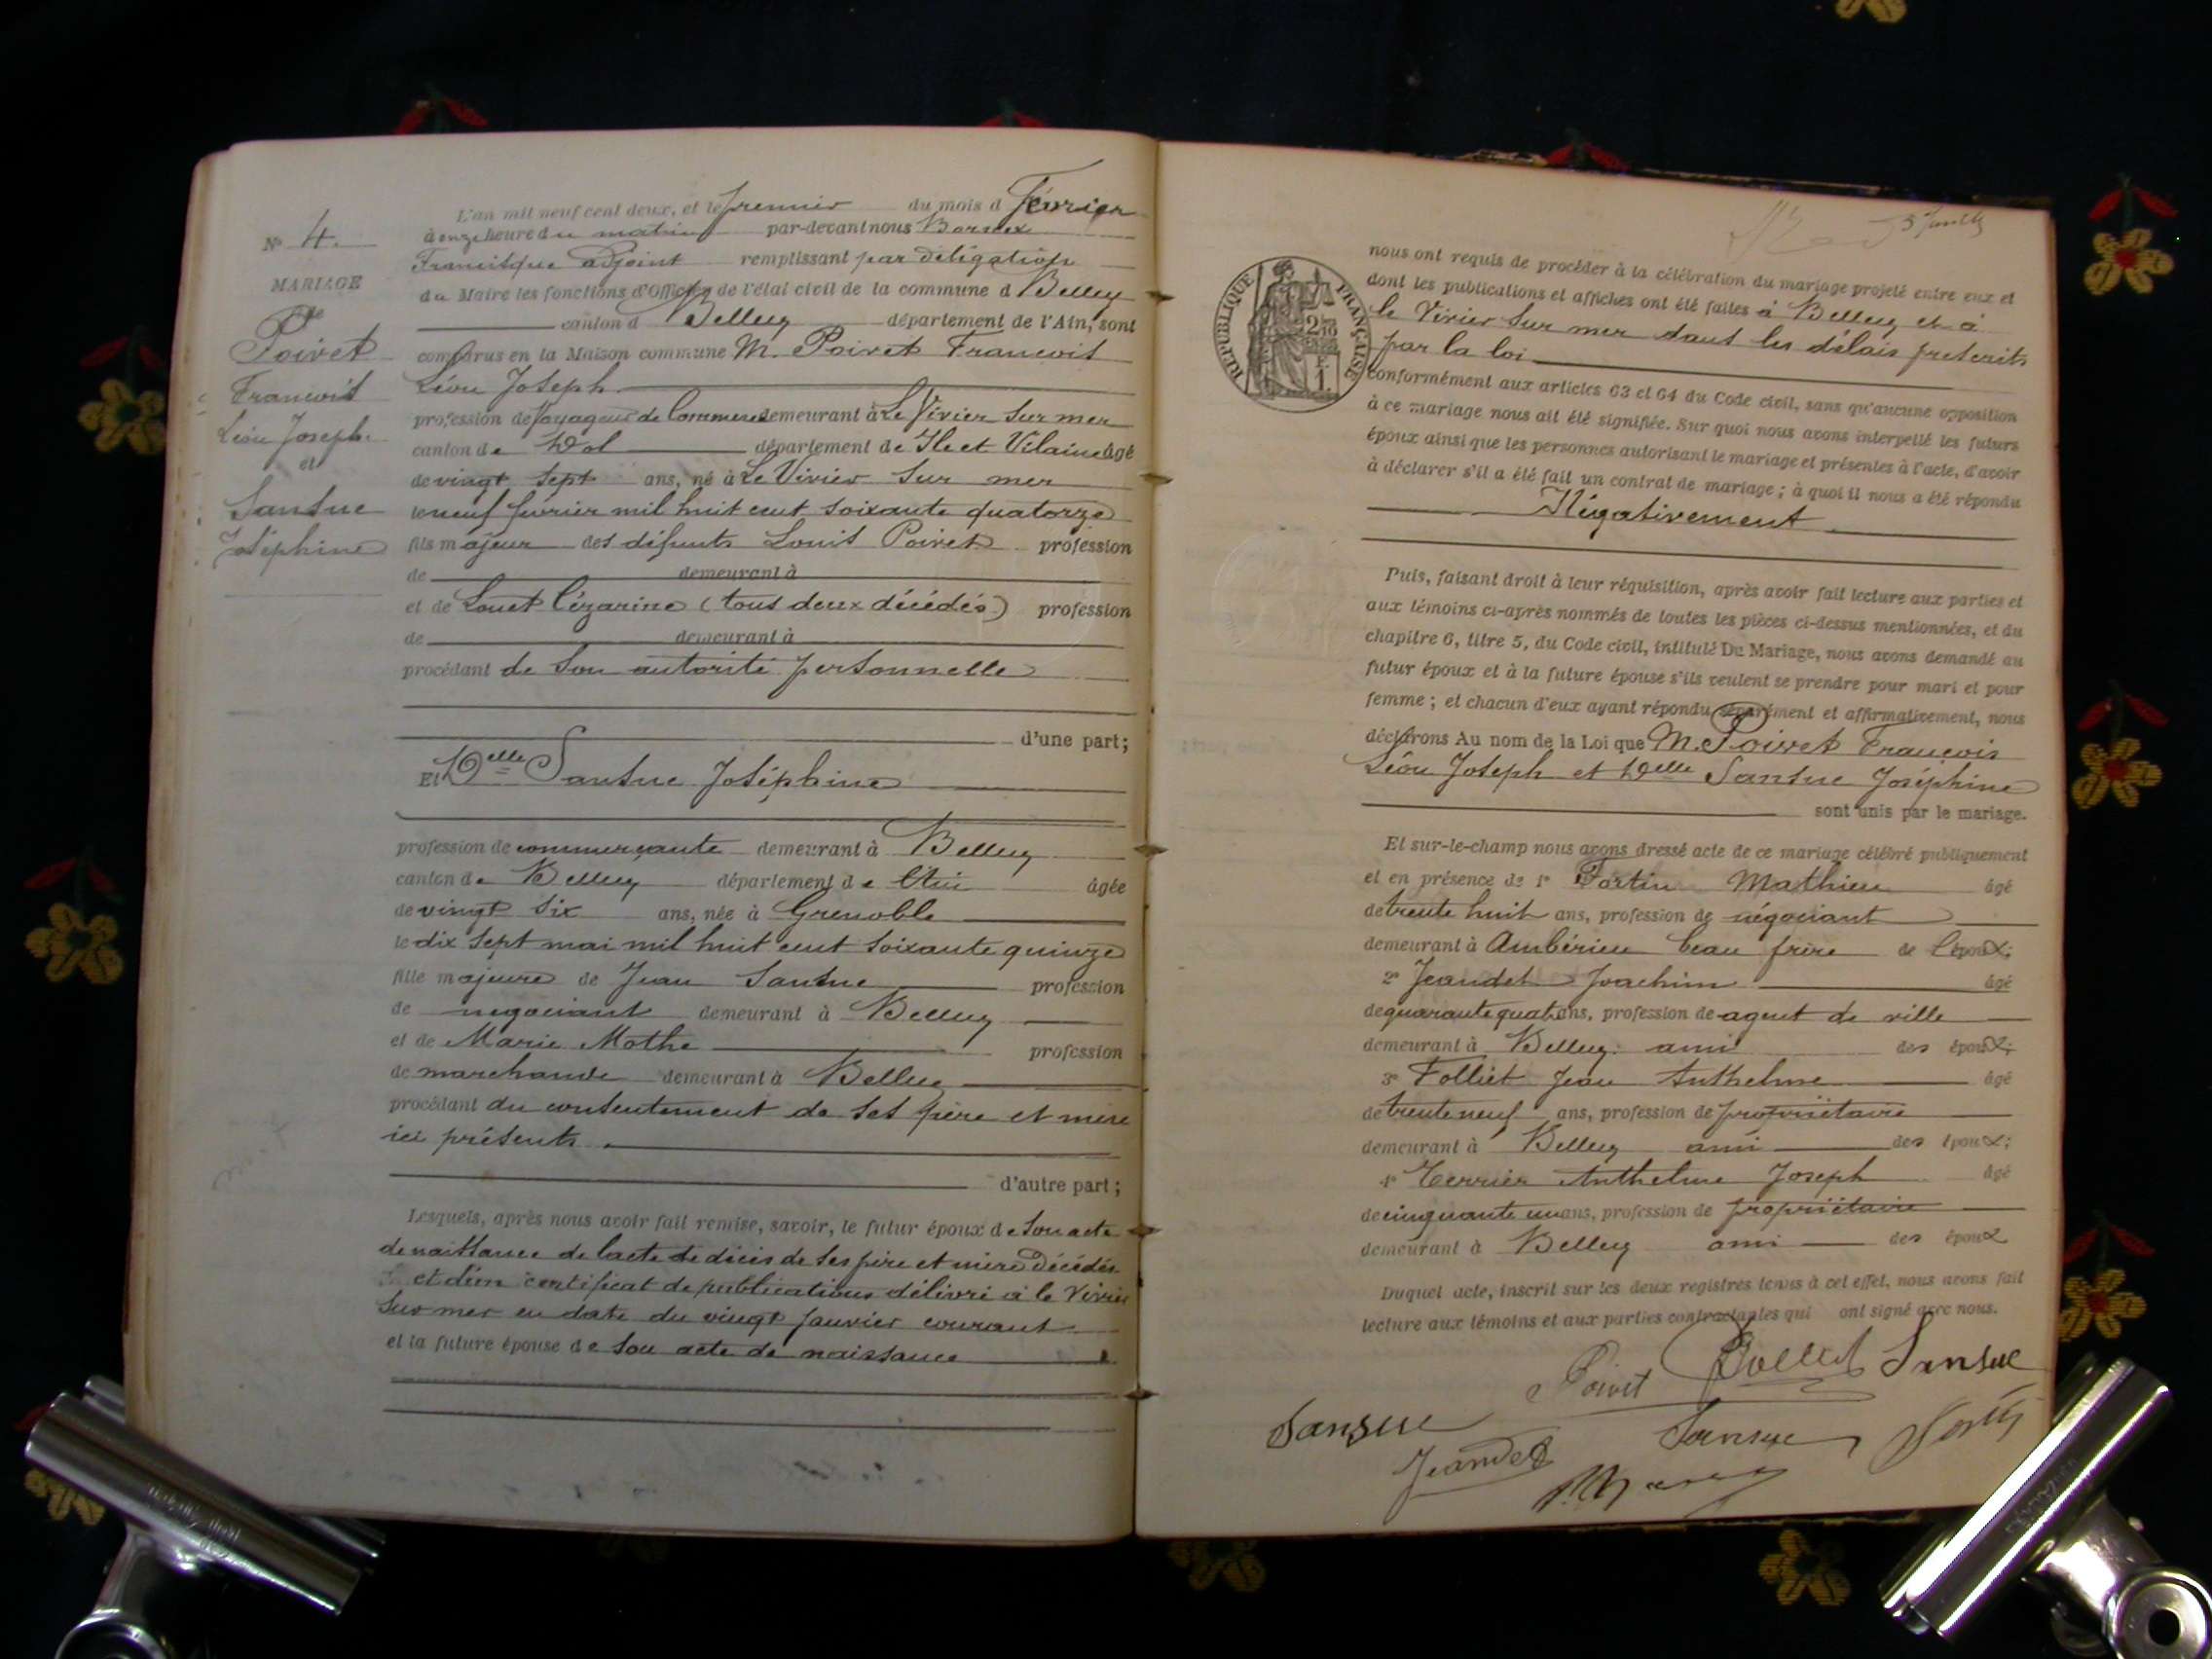 L'an mil neuf cent deux, et le premier du mois d Février
à onze heure du matin par-devant nous
Francisque adjoint remplissant par délégation
du Maire les fonctions d'Officier de l'état civil de la commune d Belley
canton d Belley département de l'Ain, sont
comparus en la Maison commune M. Poiret François
Léon Joseph
profession de Voyageur de Commerce demeurant à Le Vivier sur mer
canton de Dol département de Ile et Vilaine âgé
de vingt sept ans, né à Le Vivier sur mer
le neuf février mil huit cent soixante quatorze
fils majeur des défunts Louis Poiret profession
de demeurant à
et de Louet Cézarine (tous deux décédés) profession
de demeurant à
procédant de son autorité personnelle
d'une part;
Et Delle Sansue Joséphine
profession de commerçante demeurant à Belley
canton de Belley département de l'Ain âgée
de vingt six ans, née à Grenoble
le dix sept mai mil huit cent soixante quinze
fille majeure de Jean Sansue profession
de négociant demeurant à Belley
et de Marie Mothe profession
de marchande demeurant à Belley
procédant du consentement de ses père et mère
ici présents.
d'autre part;
Lesquels, après nous avoir fait remise, savoir, le futur époux de son acte
de naissance de l'acte de décès de ses père et mère décédés
et d'un certificat de publications délivré à le Vivier
sur mer en date du vingt janvier courant
et la future épouse de son acte de naissance
N° 4.
MARIAGE
Poiret
François
Léon Joseph
et
Sansue
Joséphine
RÉPUBLIQUE FRANÇAISE
nous ont requis de procéder à la célébration du mariage projeté entre eux et
dont les publications et affiches ont été faites à Belley et à
le Vivier sur mer dans les délais prescrits
par la loi
conformément aux articles 63 et 64 du Code civil, sans qu'aucune opposition
à ce mariage nous ait été signifiée. Sur quoi nous avons interpellé les futurs
époux ainsi que les personnes autorisant le mariage et présentes à l'acte, d'avoir
à déclarer s'il a été fait un contrat de mariage; à quoi il nous a été répondu
Négativement
Puis, faisant droit à leur réquisition, après avoir fait lecture aux parties et
aux témoins ci-après nommés de toutes les pièces ci-dessus mentionnées, et du
chapitre 6, titre 5, du Code civil, intitulé Du Mariage, nous avons demandé au
futur époux et à la future épouse s'ils veulent se prendre pour mari et pour
femme; et chacun d'eux ayant répondu séparément et affirmativement, nous
déclarons Au nom de la Loi que M. Poiret François
Léon Joseph et Delle Sansue Joséphine
sont unis par le mariage.
Et sur-le-champ nous avons dressé acte de ce mariage célébré publiquement
et en présence de 1° Fortin Mathieu âgé
de trente huit ans, profession de négociant
demeurant à Ambérieu beau frère de l'époux;
2° Jeandet Joachim âgé
de quarante quatre ans, profession de agent de ville
demeurant à Belley ami des époux;
3° Folliet Jean Anthelme âgé
de trente neuf ans, profession de propriétaire
demeurant à Belley ami des époux;
4° Terrier Anthelme Joseph âgé
de cinquante un ans, profession de propriétaire
demeurant à Belley ami des époux
Duquel acte, inscrit sur les deux registres tenus à cet effet, nous avons fait
lecture aux témoins et aux parties contractantes qui ont signé avec nous.
Poiret Folliet Sansue
Sansue Sansue
Jeandet